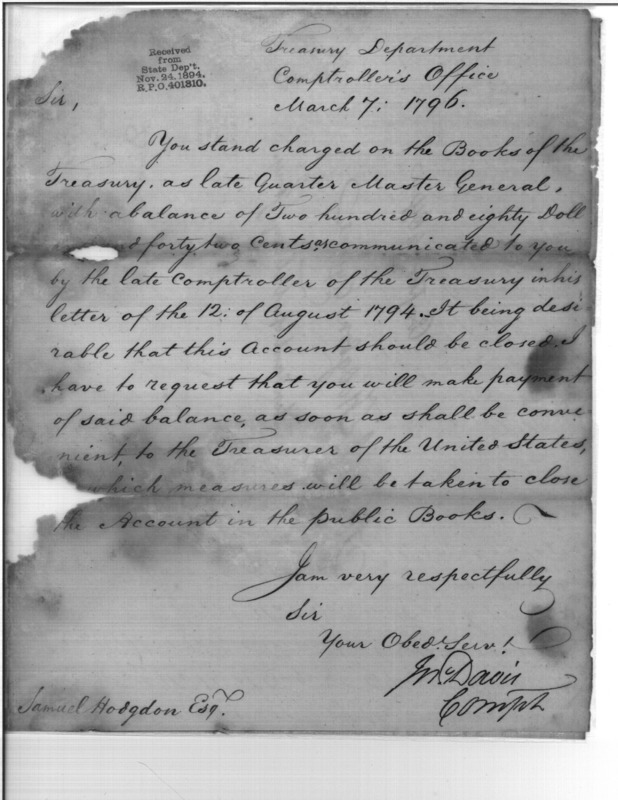 Received
from
State Dep't.
Nov. 24. 1894.
R.P.O. 401310.
Treasury Department
Comptroller's Office
March 7: 1796.
Sir,
You stand charged on the Books of the
Treasury, as late Quarter Master General,
with a balance of Two hundred and eighty Doll
forty two Cents as communicated to you
by the late Comptroller of the Treasury in his
letter of the 12: of August 1794. It being desi-
rable that this Account should be closed. I
have to request that you will make payment
of said balance, as soon as shall be conve-
nient, to the Treasurer of the United States,
which measures will be taken to close
the Account in the public Books.
I am very respectfully
Sir
Your Obedt. Servt.
Jno Davis
Compt
Samuel Hodgdon Esqr.